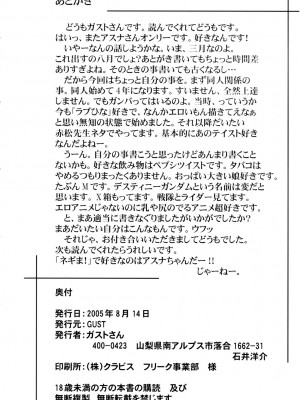 あとがき
どうもガストさんです。読んでくれてどうもです。
はいっ、またアスナさんオンリーです。好きなんです！
いやーなんの話しようかな。いま、三月なのよ。
これ出すの八月でしょ？あとがき書いてもちょっと時間差
ありすぎよね。そのときの事書いても古くなるし…
だから今回はちょっと自分の事を。まず同人関係の
事。同人始めて４年になります。すいません、全然上達
しません。でもガンバってはいるのよ。当時、っていうか
今も「ラブひな」好きで、なんかエロいもん描きてえなぁ
と思い無知の状態で始めました。それ以降だいたい
赤松先生ネタでやってます。基本的にあのテイスト好き
なんだよねー。
うーん、自分の事書こうと思ったけどあんまり書くこと
ないかも。好きな飲み物はペプシツイストです。タバコは
やめるつもりまったくありません。おっぱい大きい娘好きです。
たぶんＭです。デスティニーガンダムという名前は変だと
思います。Ｘ箱もってます。戦隊とライダー見てます。
エロアニメじゃないのに乳や尻のでるアニメ超好きです。
と、まあ適当に書きなぐりましたがいかがでしたか？
まあだいたい自分はこんなもんです。ウフッ
それじゃ、お付き合いいただきましてどうもでした。
次も読んでくれたらうれしいです。
「ネギま！」で好きなのはアスナちゃんだー！！
じゃーねー。
奥付
発行日：2005年8月14日
発行元：GUST
発行者：ガストさん
400-0423 山梨県南アルプス市落合 1662-31
石井洋介
印刷所：（株）クラビス フリーク事業部 様
18歳未満の方の本書の購読 及び
無断複製、無断転載を禁じます